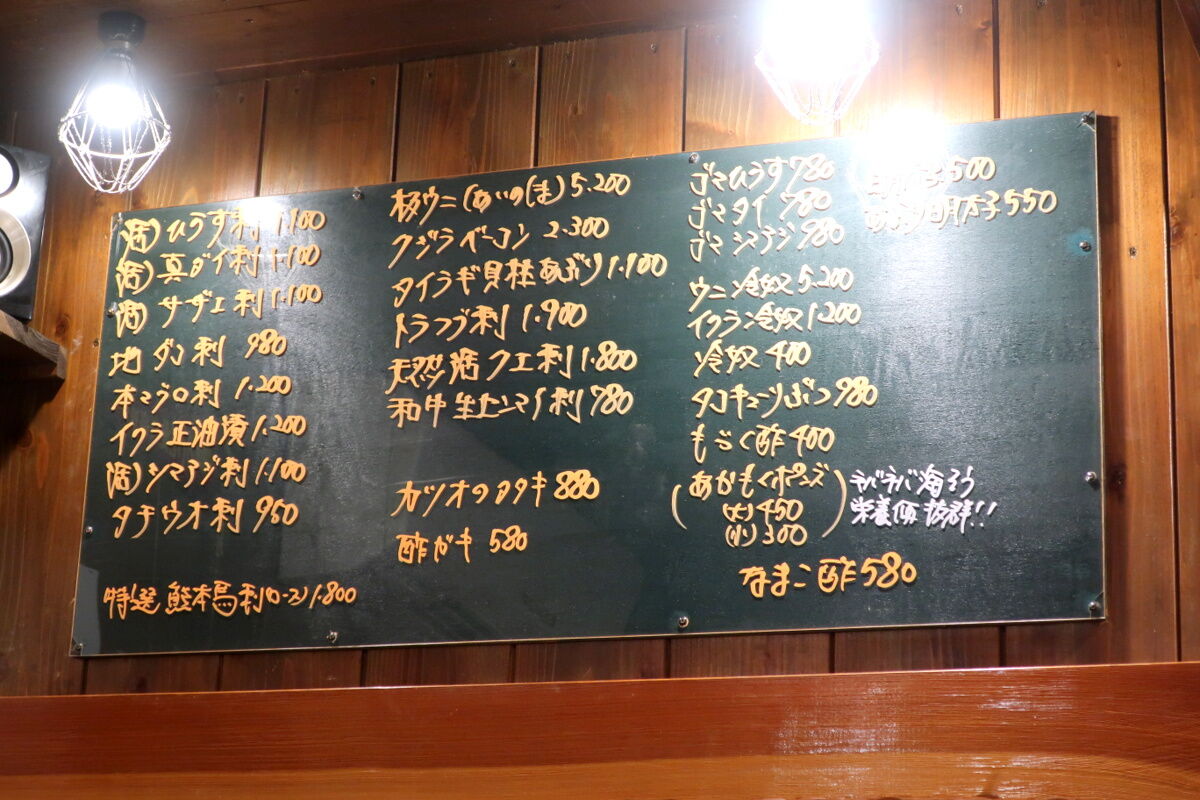 活)ひらす刺 1.100
活)真ダイ刺 1.100
活)サザエ刺 1.100
地ダコ刺 980
本マグロ刺 1.200
イクラ正油漬 1.200
活)シマアジ刺 1.100
タチウオ刺 950
特選 熊本馬刺(ロース) 1.800
板ウニ(あいのしま) 5.200
クジラベーコン 2.300
タイラギ貝柱あぶり 1.100
トラフグ刺 1.900
天然活クエ刺 1.800
和牛生センマイ刺 780
カツオのタタキ 880
酢ガキ 580
ゴマひらす 780
ゴマタイ 780
ゴマシマアジ 980
ウニ冷奴 5.200
イクラ冷奴 1.200
冷奴 400
タコキューリぶつ 980
もずく酢 400
(あかもくポンズ
(大) 450
(小) 300)
ネバネバ海そう
栄養価抜群!!
なまこ酢 580
500
明太子 550